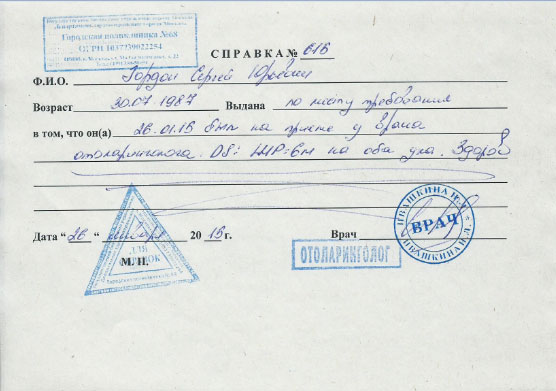 Городская поликлиника №68
СПРАВКА № 616
Ф.И.О. Гордон Сергей Юрьевич
Возраст 30.07 1987 Выдана по месту требования
в том, что он(а) 26.01.15 был на приеме у врача
отоларинголога. DS: ШР=6м на оба уха. Здоров
Дата "26" января 2015 г. Врач
М.П.
ОТОЛАРИНГОЛОГ
ИВАШКИНА Н.Л.
ВРАЧ
ИВАШКИНА Н.Л.